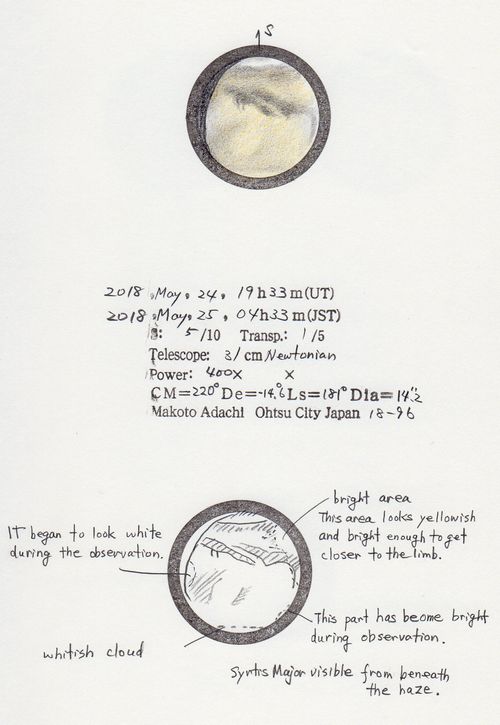 S
2018, May, 24, 19h33m(UT)
2018, May, 25, 04h33m(JST)
S: 5/10 Transp.: 1/5
Telescope: 31 cm Newtonian
Power: 400X X
CM=220° De=-14.°6 Ls=181° Dia=14."2
Makoto Adachi Ohtsu City Japan 18-96
bright area
This area looks yellowish
and bright enough to get
closer to the limb.
IT began to look white
during the observation.
This part has beome bright
during observation.
whitish cloud
Syrtis Major visible from beneath
the haze.